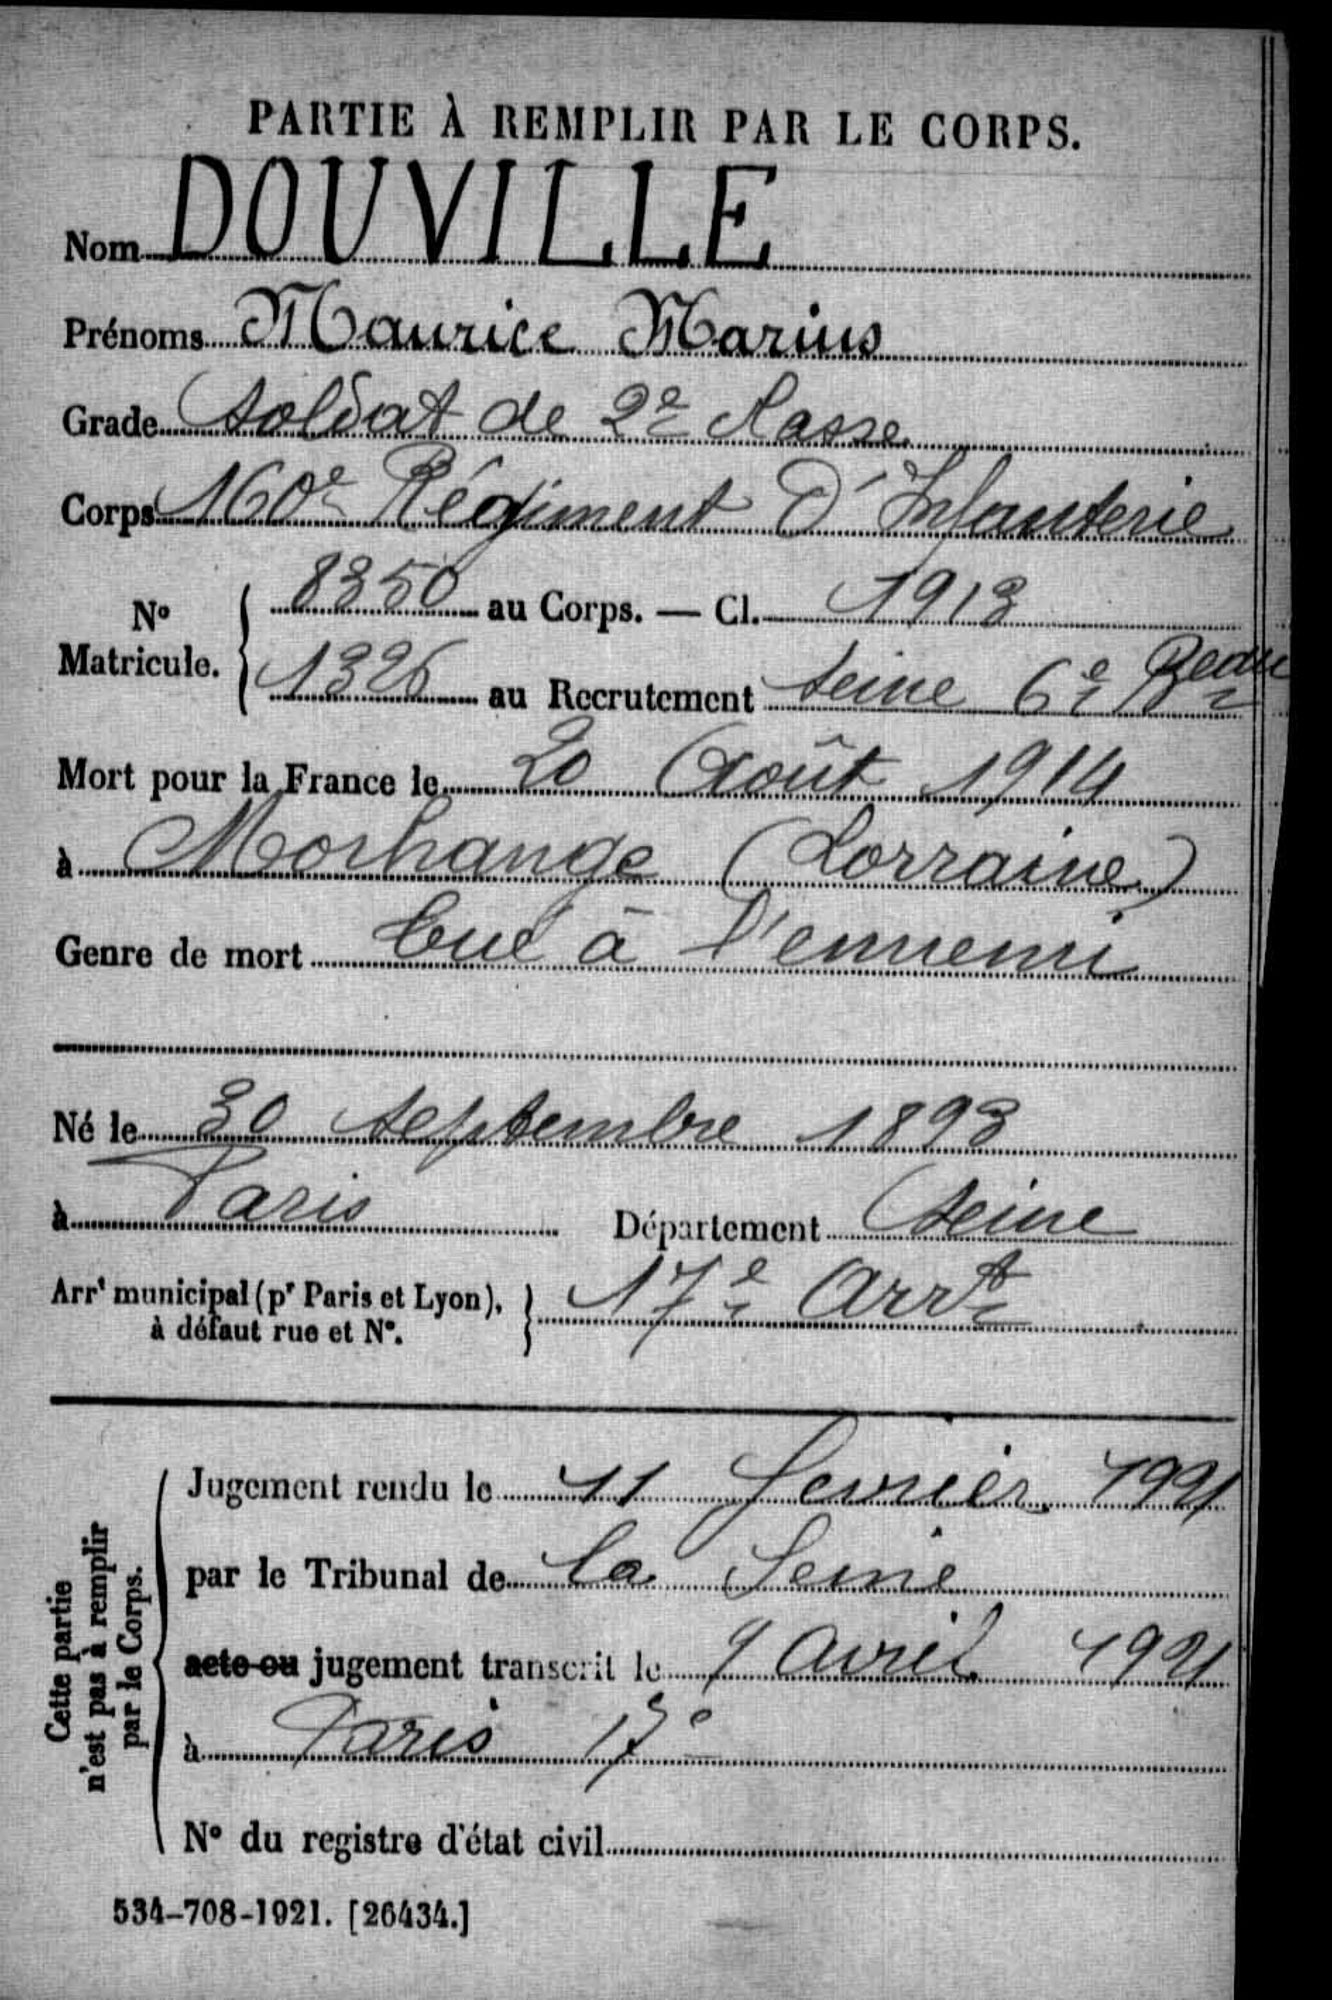 PARTIE À REMPLIR PAR LE CORPS.
Nom DOUVILLE
Prénoms Maurice Marius
Grade Soldat de 2e classe
Corps 160e Régiment d'Infanterie
No Matricule. { 8350 au Corps. — Cl. 1913
1326 au Recrutement Seine 6e Beau
Mort pour la France le 20 Août 1914
à Morhange (Lorraine)
Genre de mort tué à l'ennemi
Né le 30 septembre 1893
à Paris Département Seine
Arrt municipal (pr Paris et Lyon), à défaut rue et No. } 17e Arrt
Cette partie n'est pas à remplir par le Corps.
Jugement rendu le 11 fevrier 1921
par le Tribunal de la Seine
acte ou jugement transcrit le 9 avril 1921
à Paris 17e
No du registre d'état civil
534-708-1921. [26434.]